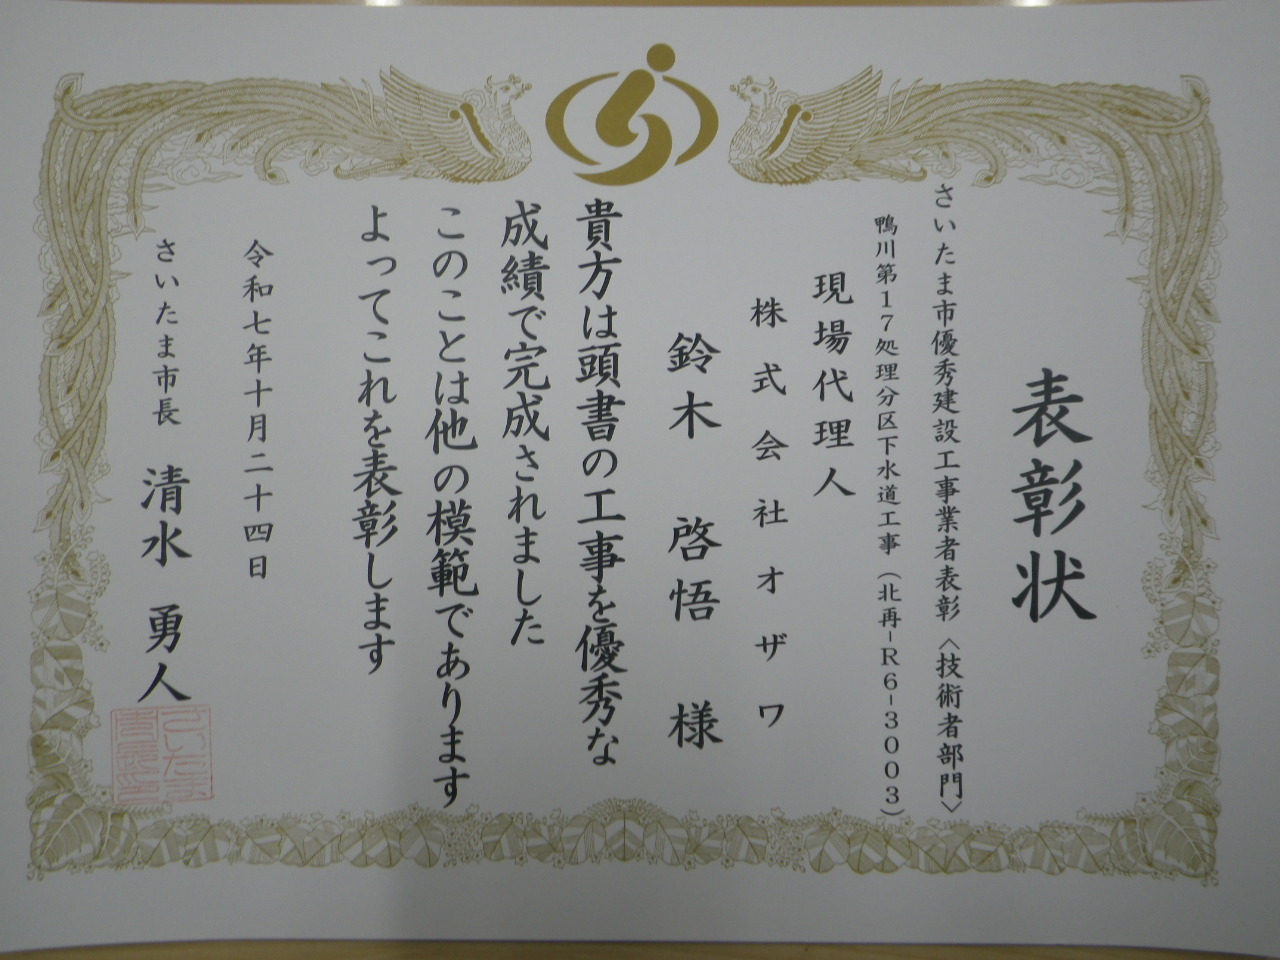 表彰状
さいたま市優秀建設工事業者表彰〈技術者部門〉
鴨川第17処理分区下水道工事（北再-R6-3003）
現場代理人
株式会社オザワ
鈴木 啓悟 様
貴方は頭書の工事を優秀な
成績で完成されました
このことは他の模範であります
よってこれを表彰します
令和七年十月二十四日
さいたま市長 清水 勇人
さいたま
市長之印